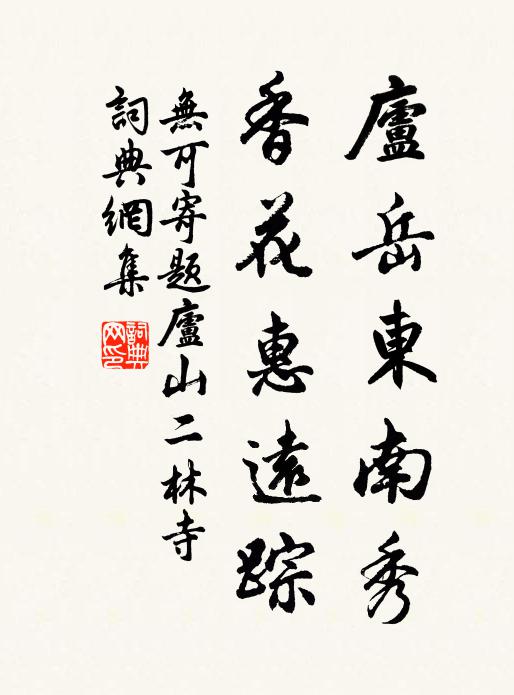 廬岳東南秀
香花惠遠踪
無可寄題廬山二林寺
詞典網集
詞典網印